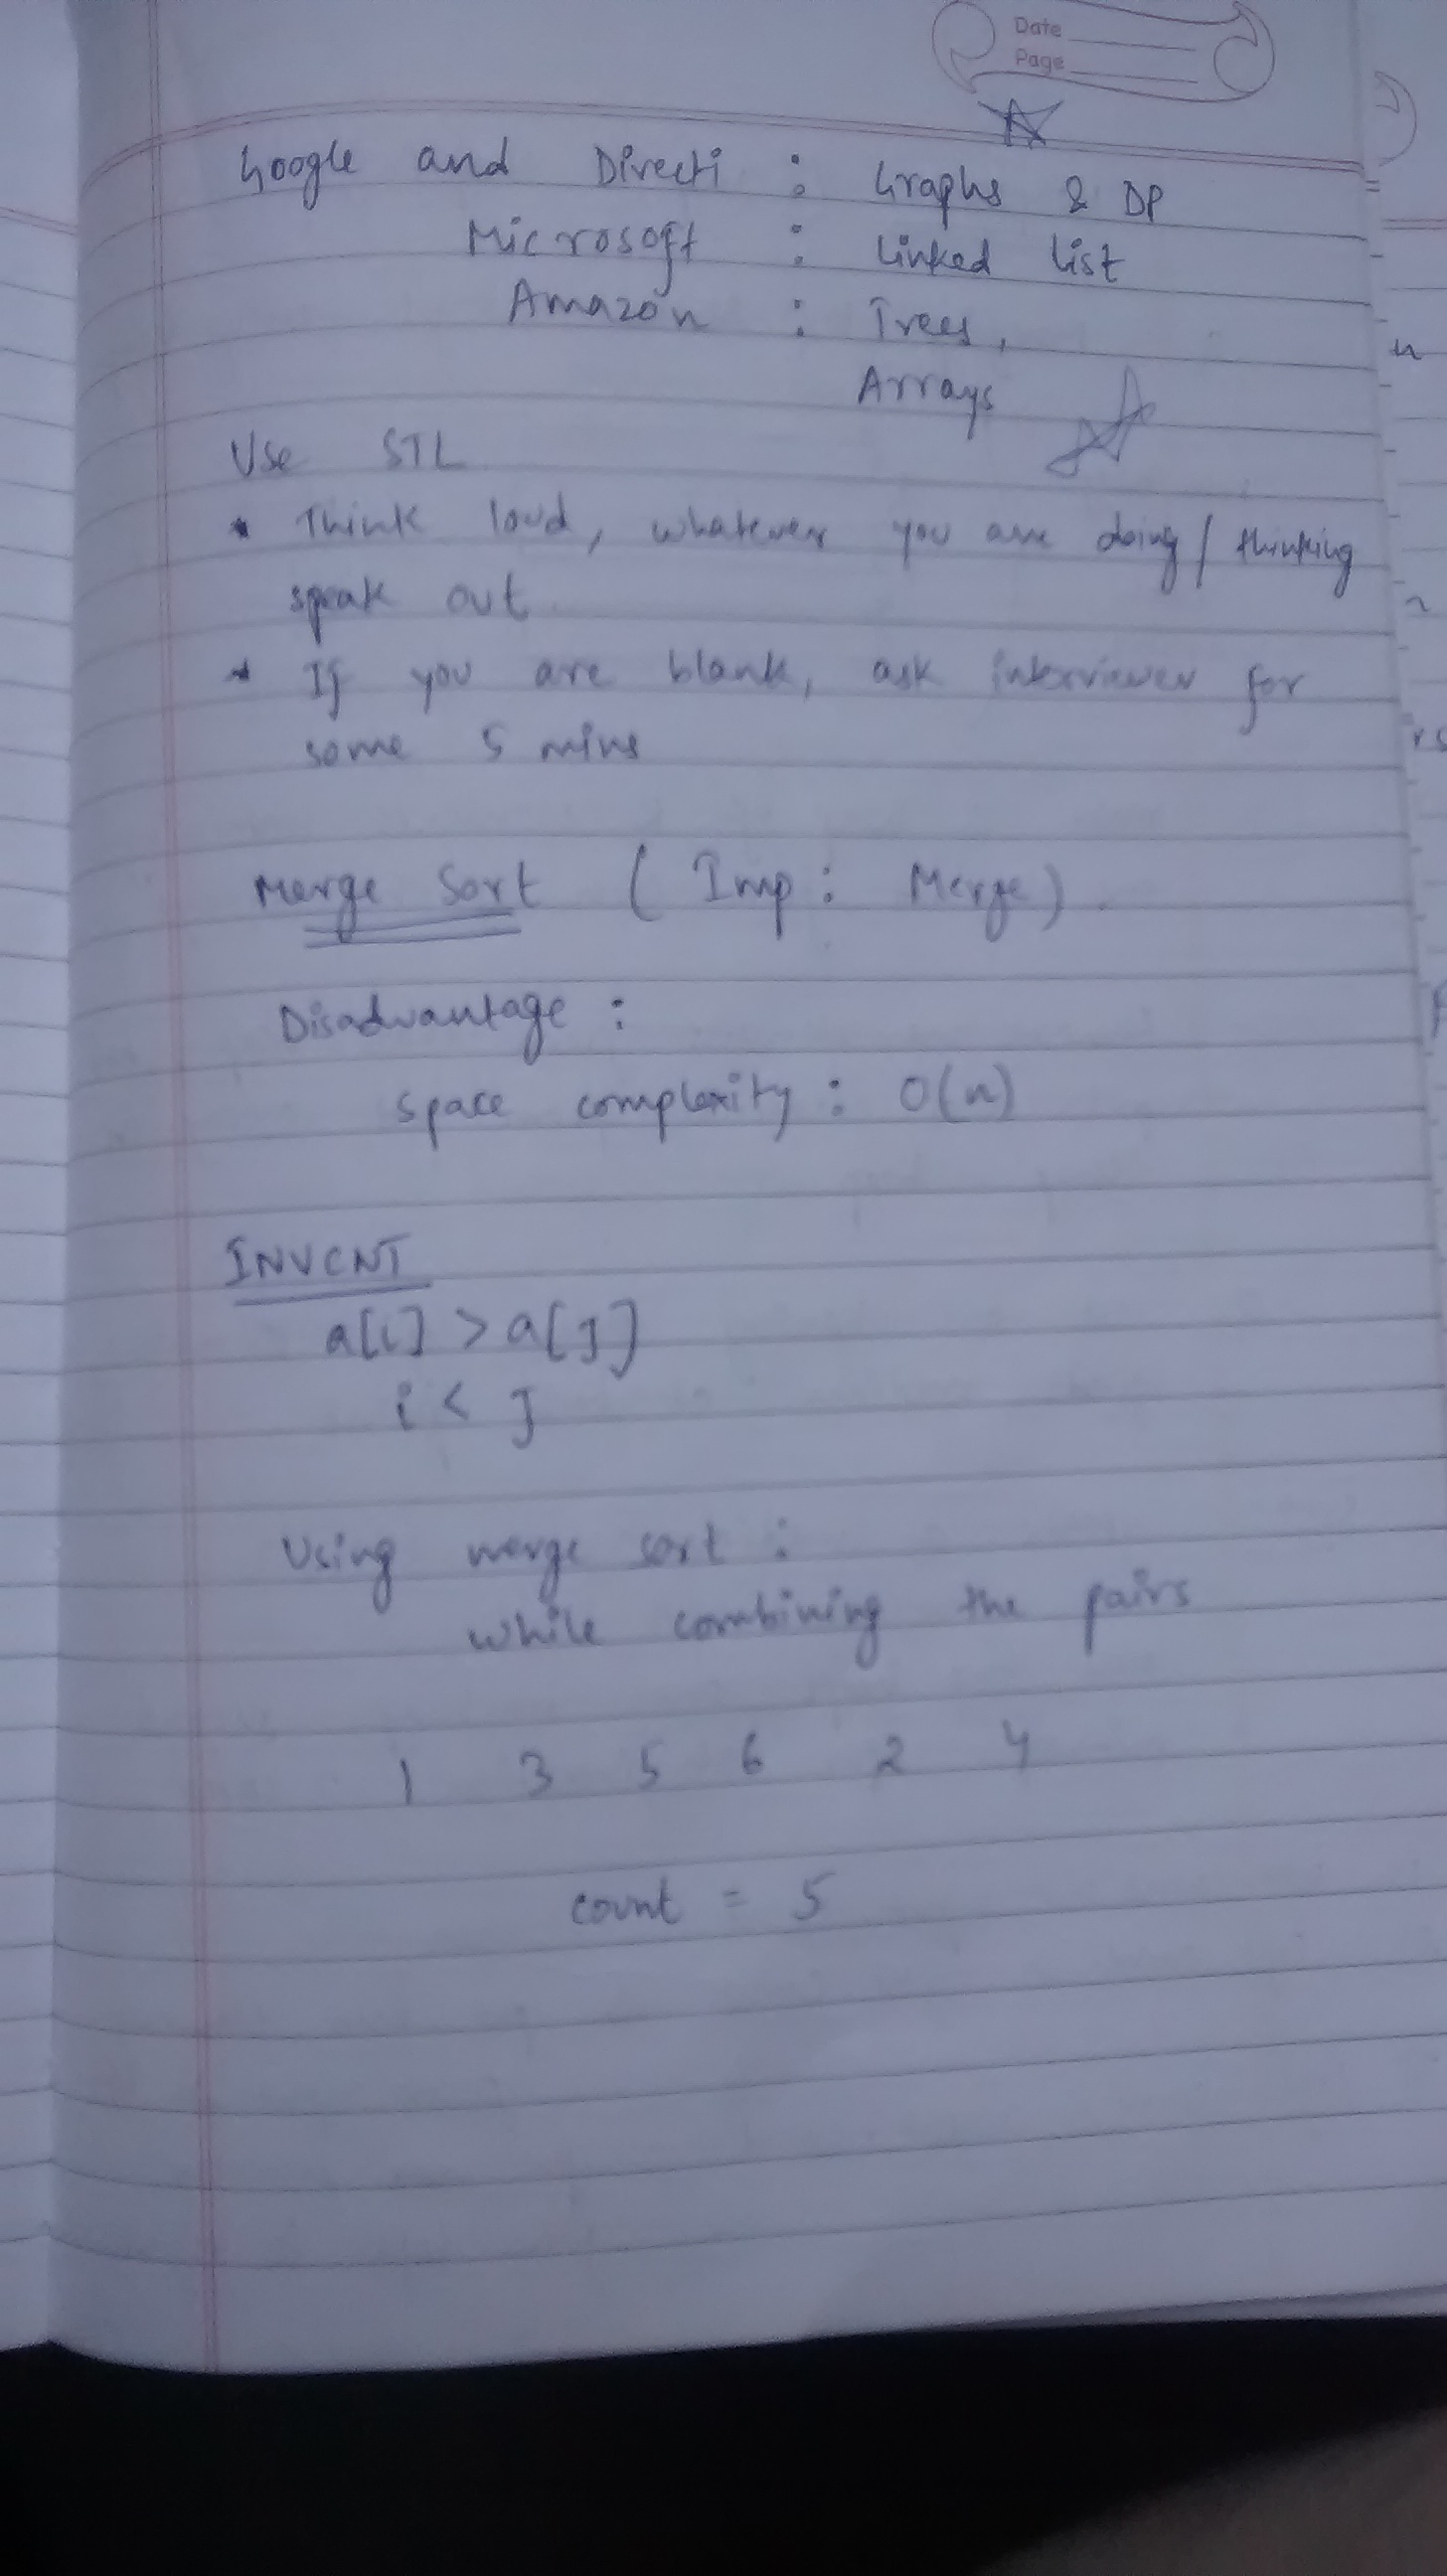 Date
Page
Google and Directi : Graphs & DP
Microsoft : Linked list
Amazon : Trees,
Arrays
Use STL
* Think loud, whatever you are doing/thinking
speak out
* If you are blank, ask interviewer for
some 5 mins
Merge Sort ( Imp : Merge)
Disadvantage :
space complexity : O(n)
INVCNT
a[i] > a[j]
i < j
Using merge sort :
while combining the pairs
1 3 5 6 2 4
count = 5